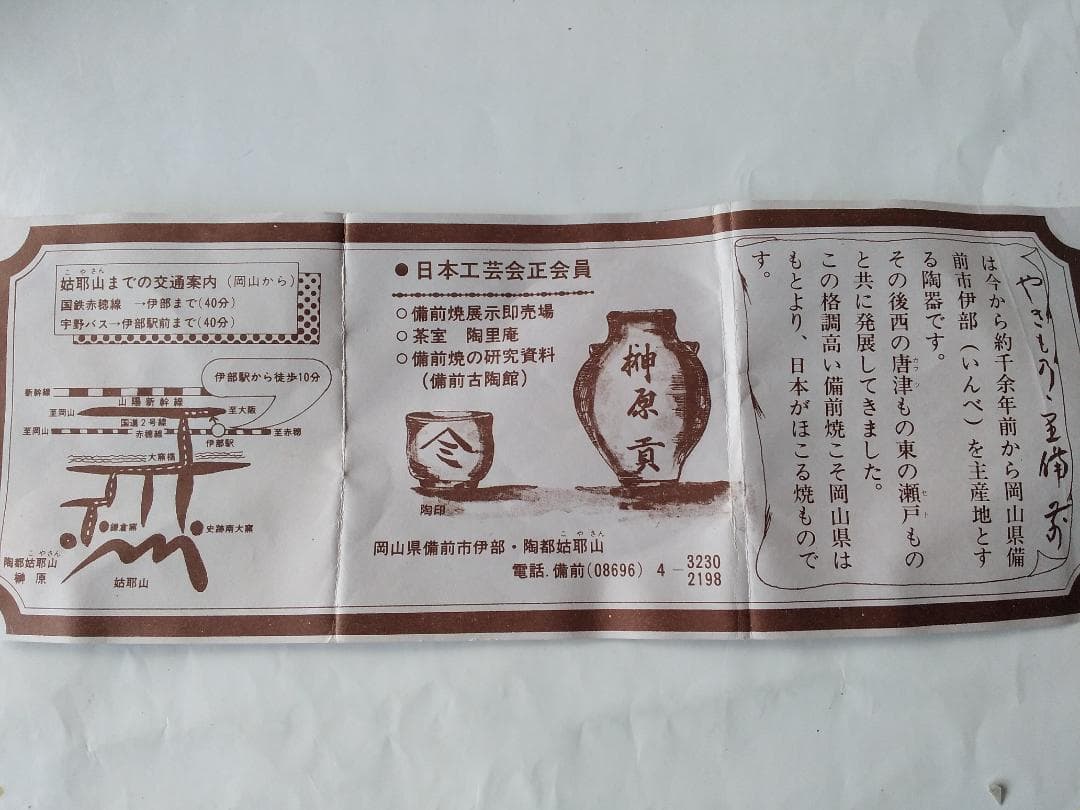 やきもの・里備前
は今から約千余年前から岡山県備
前市伊部（いんべ）を主産地とす
る陶器です。
その後西の唐津もの東の瀬戸もの
と共に発展してきました。
この格調高い備前焼こそ岡山県は
もとより、日本がほこる焼もので
す。
カラツ
セト
●日本工芸会正会員
○備前焼展示即売場
○茶室 陶里庵
○備前焼の研究資料
（備前古陶館）
榊原貢
陶印
こやさん
岡山県備前市伊部・陶都姑耶山
電話.備前(08696) 4－3230
2198
こやさん
姑耶山までの交通案内（岡山から）
国鉄赤穂線 →伊部まで(40分)
宇野バス→伊部駅前まで(40分)
伊部駅から徒歩10分
新幹線
山陽新幹線
至岡山
至大阪
国道2号線
至岡山
赤穂線
至赤穂
伊部駅
大窯橋
鎌倉窯
史跡南大窯
こやさん
陶都姑耶山
榊原
姑耶山